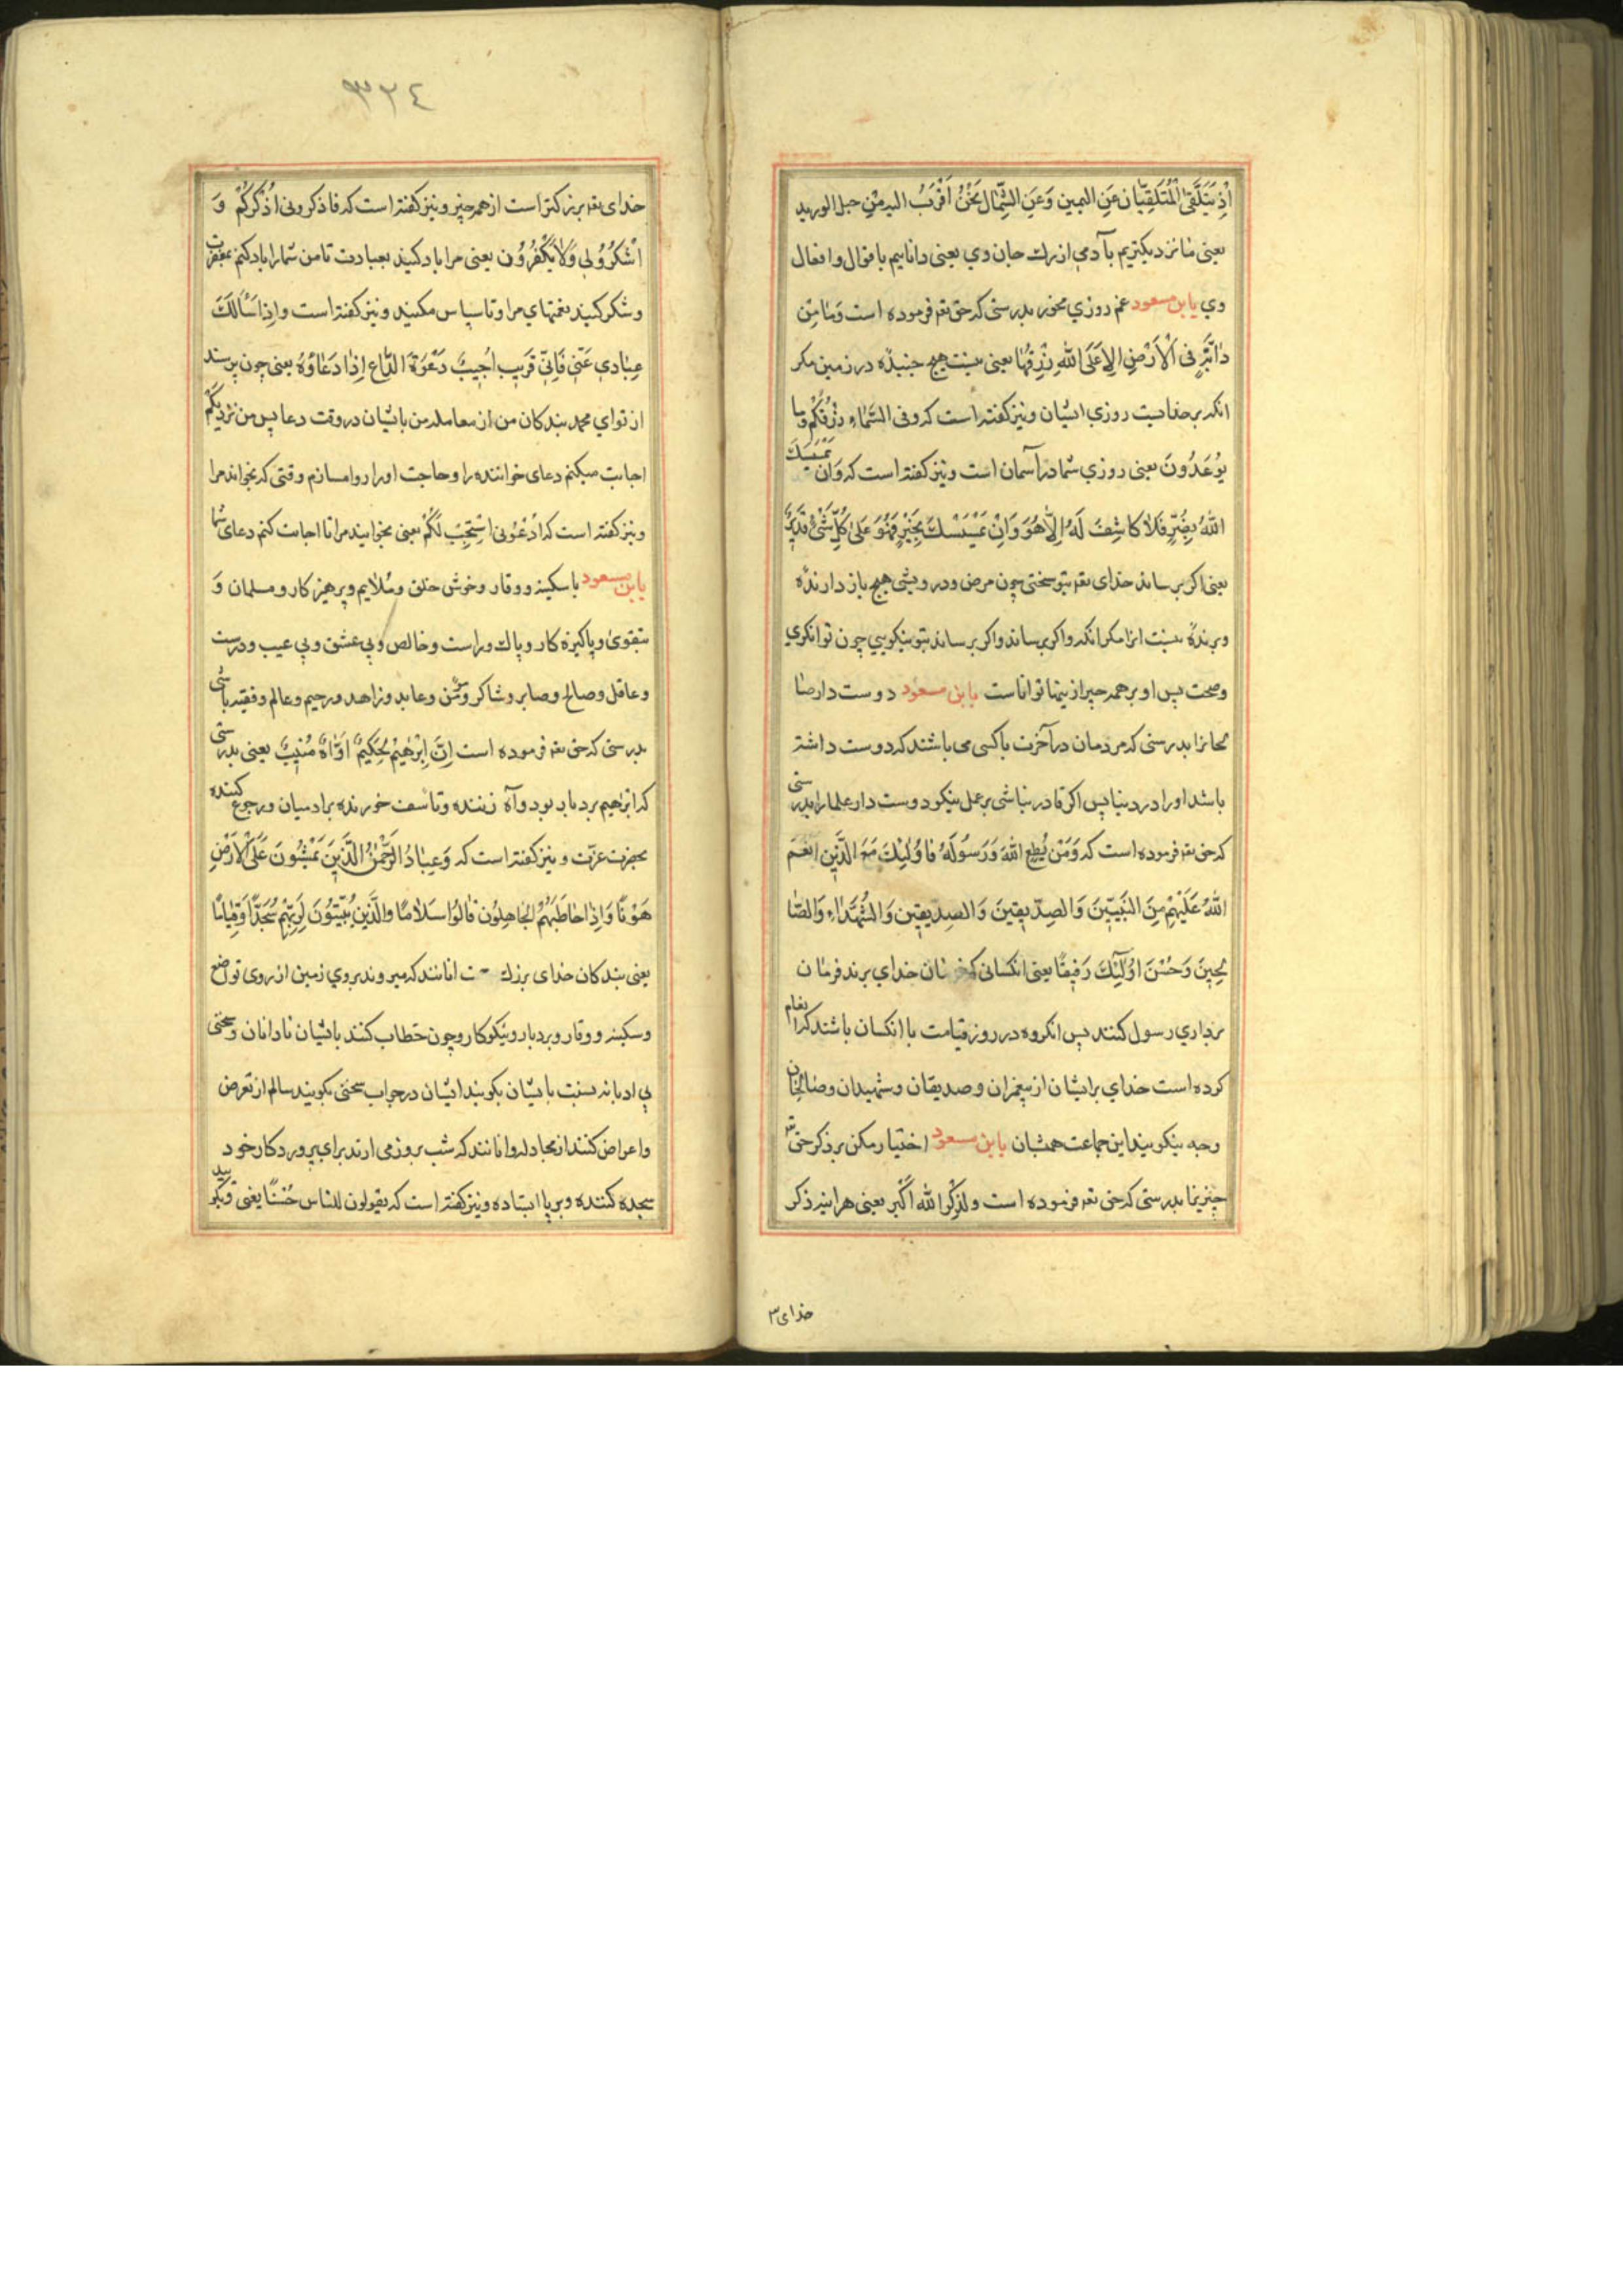 اِذْ یَتَلَقَّی الْمُتَلَقِّیَانِ عَنِ الیمین وَعَنِ الشِّمٰالِ نَحْنُ اَقْرَبُ الیه مِنْ حبل الورید
یعنی مٰا نزدیکتریم بآدمی ازرك جان وي یعنی داناییم باقوال وافعال
وي یابن مسعود غم روزي مخور بدرستی که حق تعه فرموده است وَمٰا مِن
دٰابَّةٍ فی الْاَرْضِ اِلاعَلَی اللهِ رِزْقُهٰا یعنی نیست هیچ جنبنده در زمین مکر
انکه برخداست روزي ایشان ونیز کفته است که وفی السَّمٰاءِ رِزْقُکُمْ وما
تُوعَدُونَ یعنی روزي شما در آسمان است ونیز کفته است که وَاِن یَمْسَسْكَ
اللهُ بِضُرٍّ فَلاٰ کٰاشِفَ لَهُ اِلاّٰ هُوَ وَاِنْ یَمْسَسْكَ بِخَیْرٍ فَهُوَ عَلیٰ کُلِّ شَیْءٍ قَدیرٌ
یعنی اکر برساند خدای تعه بتو سختی چون مرض ودرویشی هیچ باز دارنده
وبرنده نیست انرا مکر انکه واکر برساند واکر برساند بتو نیکویي چون توانکري
وصحت پس او بر همه چیز ازینها تواناست یابن مسعود دوست دار صٰا
لحانرا بدرستی که مردمان در آخرت باکسی می باشند که دوست داشته
باشد اورا در دنیا پس اکر قادر نباشی بر عمل نیکو دوست دار علمارا بدرستی
که حق تعه فرموده است که وَمَنْ یُطِعِ اللهَ وَرَسُولَهُ فٰاوُلٰئِكَ مَعَ الَّذینَ انعَمَ
اللهُ عَلَیْهِمْ مِنَ النَّبیّینَ وَالصِدّیقینَ وَالصِدیقین وَالشُّهَدٰاءِ وَالصّٰا
لِحینَ وَحَسُنَ اوُلٰئِكَ رَفیقًا یعنی انکسانی که فرمان خداي برند فرمٰان
برداري رسول کنند پس انکروه در روز قیامت با انکسان باشند که انعام
کرده است خداي برایشان از پیغمبران وصدیقان وشهیدان وصٰالحان
وچه نیکویند این جماعت همشان یابن مسعود اختیار مکن برذکر حق تعه
چیزیرا بدرستی که حق تعه فرموده است ولذِکْرُ اللهِ اَکْبَر یعنی هراینه ذکر
خدای۳
۳۳٤
خدای تعه بزرکتر است از همه چیز ونیز کفته است که فاذکرونی اذْکُرْکُمْ وَ
اشْکُرُوُلي وَلاٰ تَکْفُرُوُن یعنی مرا یاد کنید بعبادت تامن شمارا یاد کنم بمغفرت
وشکر کنید نعمتهاي مرا وناسپاس مکنید ونیز کفته است واِذٰا سَأَلَكَ
عِبٰادي عَنّی فَاِنّی قَریب اُجیبُ دَعْوَةَ الدّٰاعِ اِذٰا دَعٰاوُهُ یعنی چون پرسند
از تواي محمد بندکان من از معامله من باایشان در وقت دعا پس من نزدیکم
اجابت میکنم دعای خواننده را وحاجت اورا روامسازم وقتی که بخواند مرا
ونیز کفته است که ادْعُوُنی اسْتَجِبْ لَکُمْ یعنی بخوانید مرا تا اجابت کنم دعای شما
یابن مسعود باسکینه ووقار وخوش خلق ومُلاٰیم وپرهیز کار ومسلمان وَ
بتقویٰ وپاکیزه کار وپاك وراست وخالص وبي عشق وبي عیب ودرست
وعاقل وصالح وصابر وشاکر ومؤمن وعابد وزاهد ورحیم وعالم وفقیه باشی
بدرستی که حق تعه فرموده است اِنَّ اِبْرٰهیمُ لَحَکیمٌ اَوّٰاهٌ مُنیبٌ یعنی بدرستی
که ابراهیم بردبار بود وآه زننده وتأسف خورنده برادمیان ورجوع کننده
بحضرت عزّت ونیز کفته است که وَعِبٰادُ الرَّحْمٰنُ الَّذینَ یَمْشُونَ عَلَی الْاَرْضِ
هَوْنًا وَاِذٰا خٰاطَبَهُمْ الجٰاهِلوُن قٰالوُا سَلاٰمًا والَّذینَ یُبَیّتوُنَ لِرَبِّهِمْ سُجَّدًا وَقِیٰامًا
یعنی بندکان خدای بزرك انانند که میروند بروي زمین از روی تواضع
وسکینه ووقار وبردبار ونیکوکار وچون خطاب کنند باایشان نادانان وسخنی
بي ادبانه نسبت باایشان بکویند ایشان در جواب سخنی بکویند سالم از تعرض
واعراض کنند از مجادله وانانند که شب بروز می ارند برای پروردکار خود
سجده کننده وبرپا ایستاده ونیز کفته است که یقولون للناس حُسْنًا یعنی وبکویید